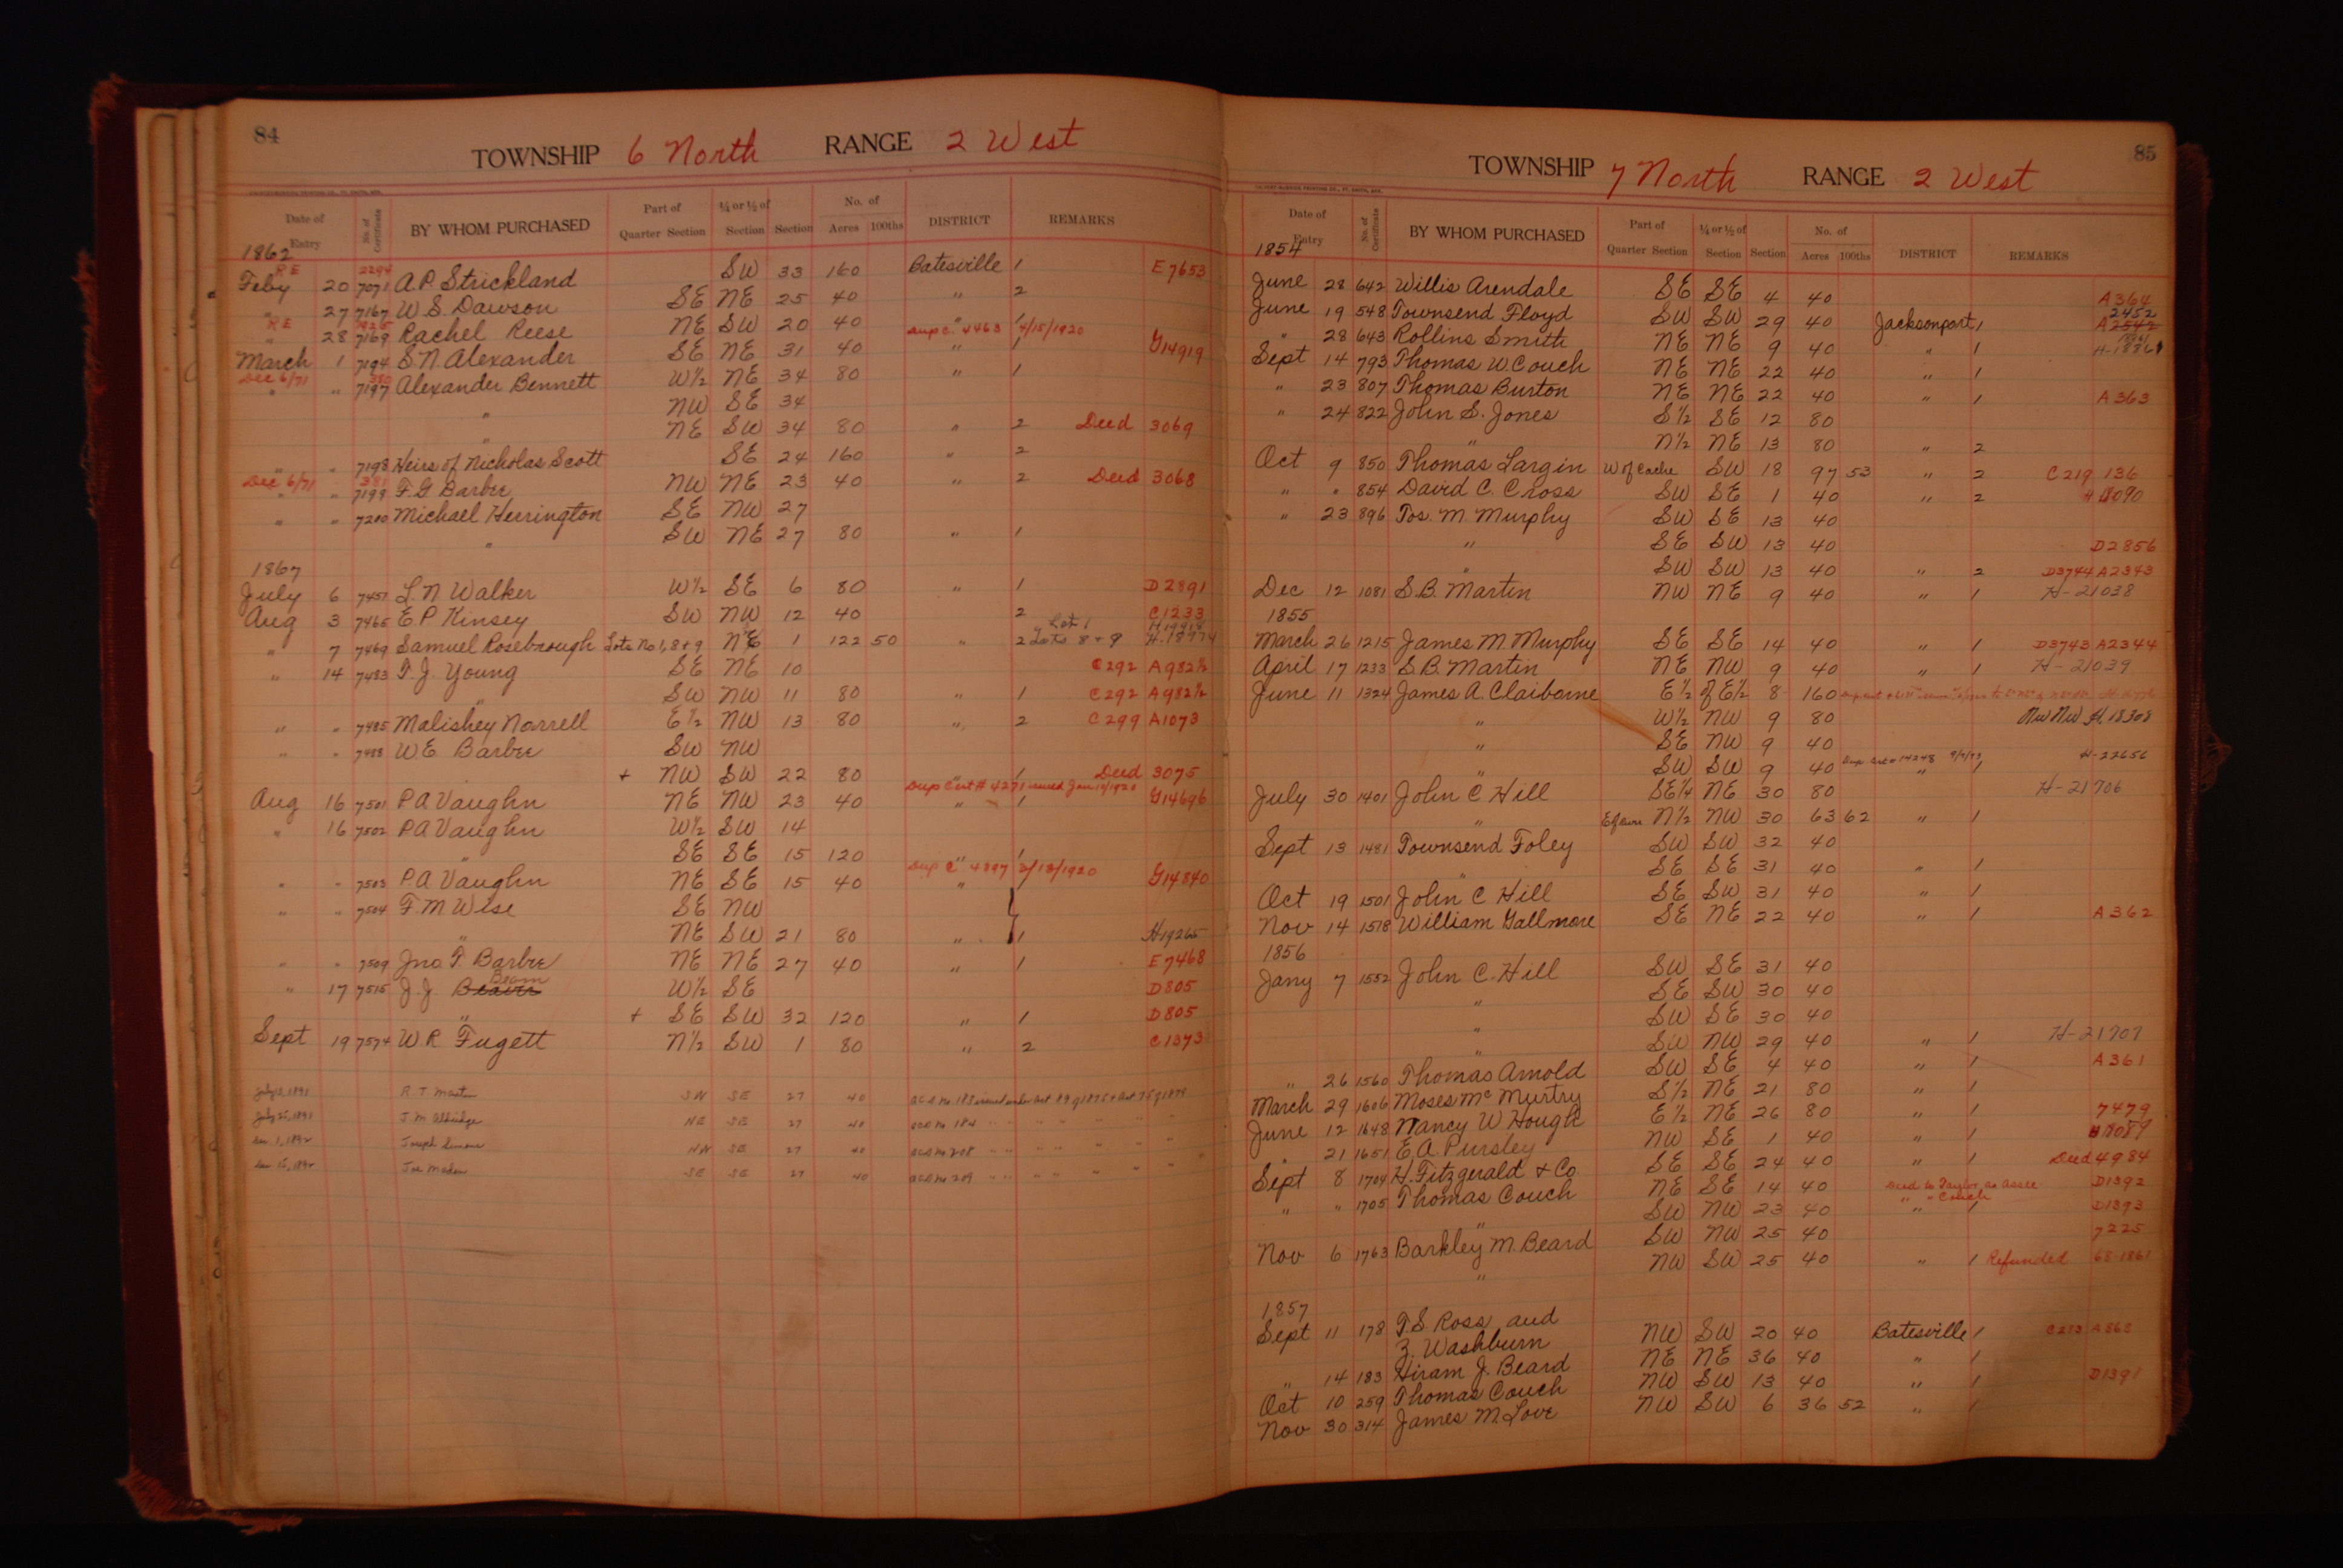 84
TOWNSHIP 6 North RANGE 2 West
Date of Entry No. of Certificate BY WHOM PURCHASED Part of Quarter Section ¼ or ½ of Section Section No. of Acres 100ths DISTRICT REMARKS
1862
RE 2294
Feby 20 7071 A.P. Strickland SW 33 160 Batesville 1 E7653
" 27 7167 W.S. Dawson SE NE 25 40 " 2
RE
" 28 7169 Rachel Reese NE SW 20 40 " 1
Dup C. 4463 4/15/1920
March 1 7194 S.N. Alexander SE NE 31 40 " 1 G14919
Dec 6/71 380
" " 7197 Alexander Bennett W½ NE 34 80 " 1
" NW SE 34
" NE SW 34 80 " 2 Deed 3069
" " 7198 Heirs of Nicholas Scott SE 24 160 " 2
Dec 6/71 381
" " 7199 F.G. Barbee NW NE 23 40 " 2 Deed 3068
" " 7200 Michael Herrington SE NW 27
" SW NE 27 80 " 1
1867
July 6 7457 L.N. Walker W½ SE 6 80 " 1 D2891
Aug 3 7465 E.P. Kinsey SW NW 12 40 2 C1233
" Lot 1
" 7 7469 Samuel Rosebrough Lots No 1, 8+9 NE 1 122 50 " 2 Lots 8+9
" 14 7483 T.J. Young SE NE 10 C292 A982½
" SW NW 11 80 " 1 C292 A982½
" " 7485 Malishey Norrell E½ NW 13 80 " 2 C299 A1073
" " 7488 W.E. Barbee SW NW
+ NW SW 22 80 " 1 Deed 3075
Dup Cert # 4271 issued Jan 10/1920
Aug 16 7501 P.A. Vaughn NE NW 23 40 " 1 G14696
" 16 7502 P.A. Vaughn W½ SW 14
" SE SE 15 120 " 1
Dup C 4397 3/13/1920
" " 7503 P.A. Vaughn NE SE 15 40 " G14840
" " 7504 F.M. Wise SE NW
" NE SW 21 80 " 1 H19265
" " 7509 Jno. T. Barbee NE NE 27 40 " 1 E7468
Beam
" 17 7515 J.J. Beaver W½ SE D805
" + SE SW 32 120 " 1 D805
Sept 19 7574 W.R. Fugett N½ SW 1 80 " 2 C1373
July 2, 1891 R.T. Martin SW SE 27 40
July 25, 1891 J.M. Aldridge NE SE 27 40
1, 1892 Joseph Simons NW SE 27 40
15, 1892 Joe Maden SE SE 27 40
85
TOWNSHIP 7 North RANGE 2 West
Date of Entry No. of Certificate BY WHOM PURCHASED Part of Quarter Section ¼ or ½ of Section Section No. of Acres 100ths DISTRICT REMARKS
1854
June 28 642 Willis Arendale SE SE 4 40 A364
2452
June 19 548 Townsend Floyd SW SW 29 40 Jacksonport 1 A2542
" 28 643 Rollins Smith NE NE 9 40 " 1
Sept 14 793 Thomas W. Couch NE NE 22 40 " 1
" 23 807 Thomas Burton NE NE 22 40 " 1 A363
" 24 822 John S. Jones S½ SE 12 80
" N½ NE 13 80 " 2
Oct 9 850 Thomas Largin W of Cache SW 18 97 53 " 2 C219 136
" " 854 David C. Cross SW SE 1 40 " 2
" 23 896 Jos. M Murphy SW SE 13 40
" SE SW 13 40 D2856
" SW SW 13 40 " 2 D3744 A2343
Dec 12 1081 S.B. Martin NW NE 9 40 " 1 H-21038
1855
March 26 1215 James M. Murphy SE SE 14 40 " 1 D3743 A2344
April 17 1233 S.B. Martin NE NW 9 40 " 1 H-21039
June 11 1324 James A. Claiborne E½ of E½ 8 160
" W½ NW 9 80 NW NW H 18308
" SE NW 9 40
" SW SW 9 40 " 1 H-22656
July 30 1401 John C Hill SE¼ NE 30 80 H-21706
" N½ NW 30 63 62 " 1
Sept 13 1481 Townsend Foley SW SW 32 40
" SE SE 31 40 " 1
Oct 19 1501 John C Hill SE SW 31 40 " 1
Nov 14 1518 William Gallmore SE NE 22 40 " 1 A362
1856
Jany 7 1552 John C. Hill SW SE 31 40
" SE SW 30 40
" SW SE 30 40
" SW NW 29 40 " 1 H-21707
" 26 1560 Thomas Arnold SW SE 4 40 " 1 A361
March 29 1606 Moses McMurtry S½ NE 21 80 " 1
June 12 1648 Nancy W Hough E½ NE 26 80 " 1 7479
" 21 1651 E.A. Pursley NW SE 1 40 " 1
Sept 8 1704 H. Fitzgerald & Co. SE SE 24 40 " 1 Deed 4984
" " 1705 Thomas Couch NE SE 14 40 Deed to Taylor as Assee D1392
" SW NW 23 40 " " Couch 1 D1393
Nov 6 1763 Barkley M. Beard SW NW 25 40 7225
" NW SW 25 40 " 1 Refunded 68-1861
1857
Sept 11 178 T.S. Ross and
Z. Washburn NW SW 20 40 Batesville 1 C273 A868
" 14 183 Hiram J. Beard NE NE 36 40 " 1
Oct 10 259 Thomas Couch NW SW 13 40 " 1 D1391
Nov 30 314 James M Love NW SW 6 36 52 " 1